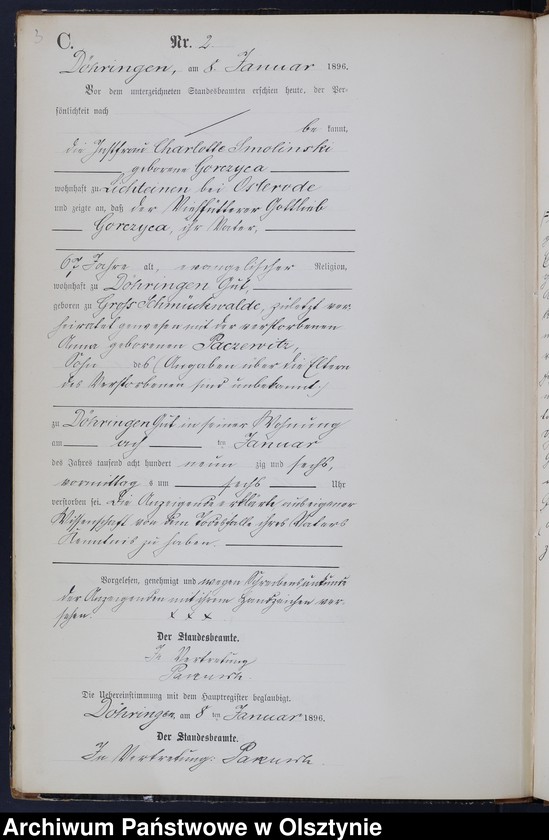 3
C.
Nr. 2
Döhringen, am 8. Januar 1896.
Vor dem unterzeichneten Standesbeamten erschien heute, der Per-
sönlichkeit nach
be kannt,
die Instfrau Charlotte Smolinski
geborene Gorczyca
wohnhaft zu Lichteinen bei Osterode
und zeigte an, daß der Viehfütterer Gottlieb
Gorczyca, ihr Vater,
67 Jahre alt, evangelischer Religion,
wohnhaft zu Döhringen Gut,
geboren zu Groß Schmückwalde, zuletzt ver-
heiratet gewesen mit der verstorbenen
Anna geborenen Paczewitz,
Sohn des (Angaben über die Eltern
des Verstorbenen sind unbekannt)
zu Döhringen Gut in seiner Wohnung
am acht ten Januar
des Jahres tausend acht hundert neun zig und sechs,
vormittag s um sechs Uhr
verstorben sei. Die Anzeigende erklärte aus eigener
Wissenschaft von dem Todesfalle ihres Vaters
Kenntnis zu haben.
Vorgelesen, genehmigt und wegen Schreibensunkunde
der Anzeigenden mit ihrem Handzeichen ver-
sehen. x x x
Der Standesbeamte.
In Vertretung
Die Uebereinstimmung mit dem Hauptregister beglaubigt.
Döhringen, am 8 ten Januar 1896.
Der Standesbeamte.
In Vertretung:
Archiwum Państwowe w Olsztynie